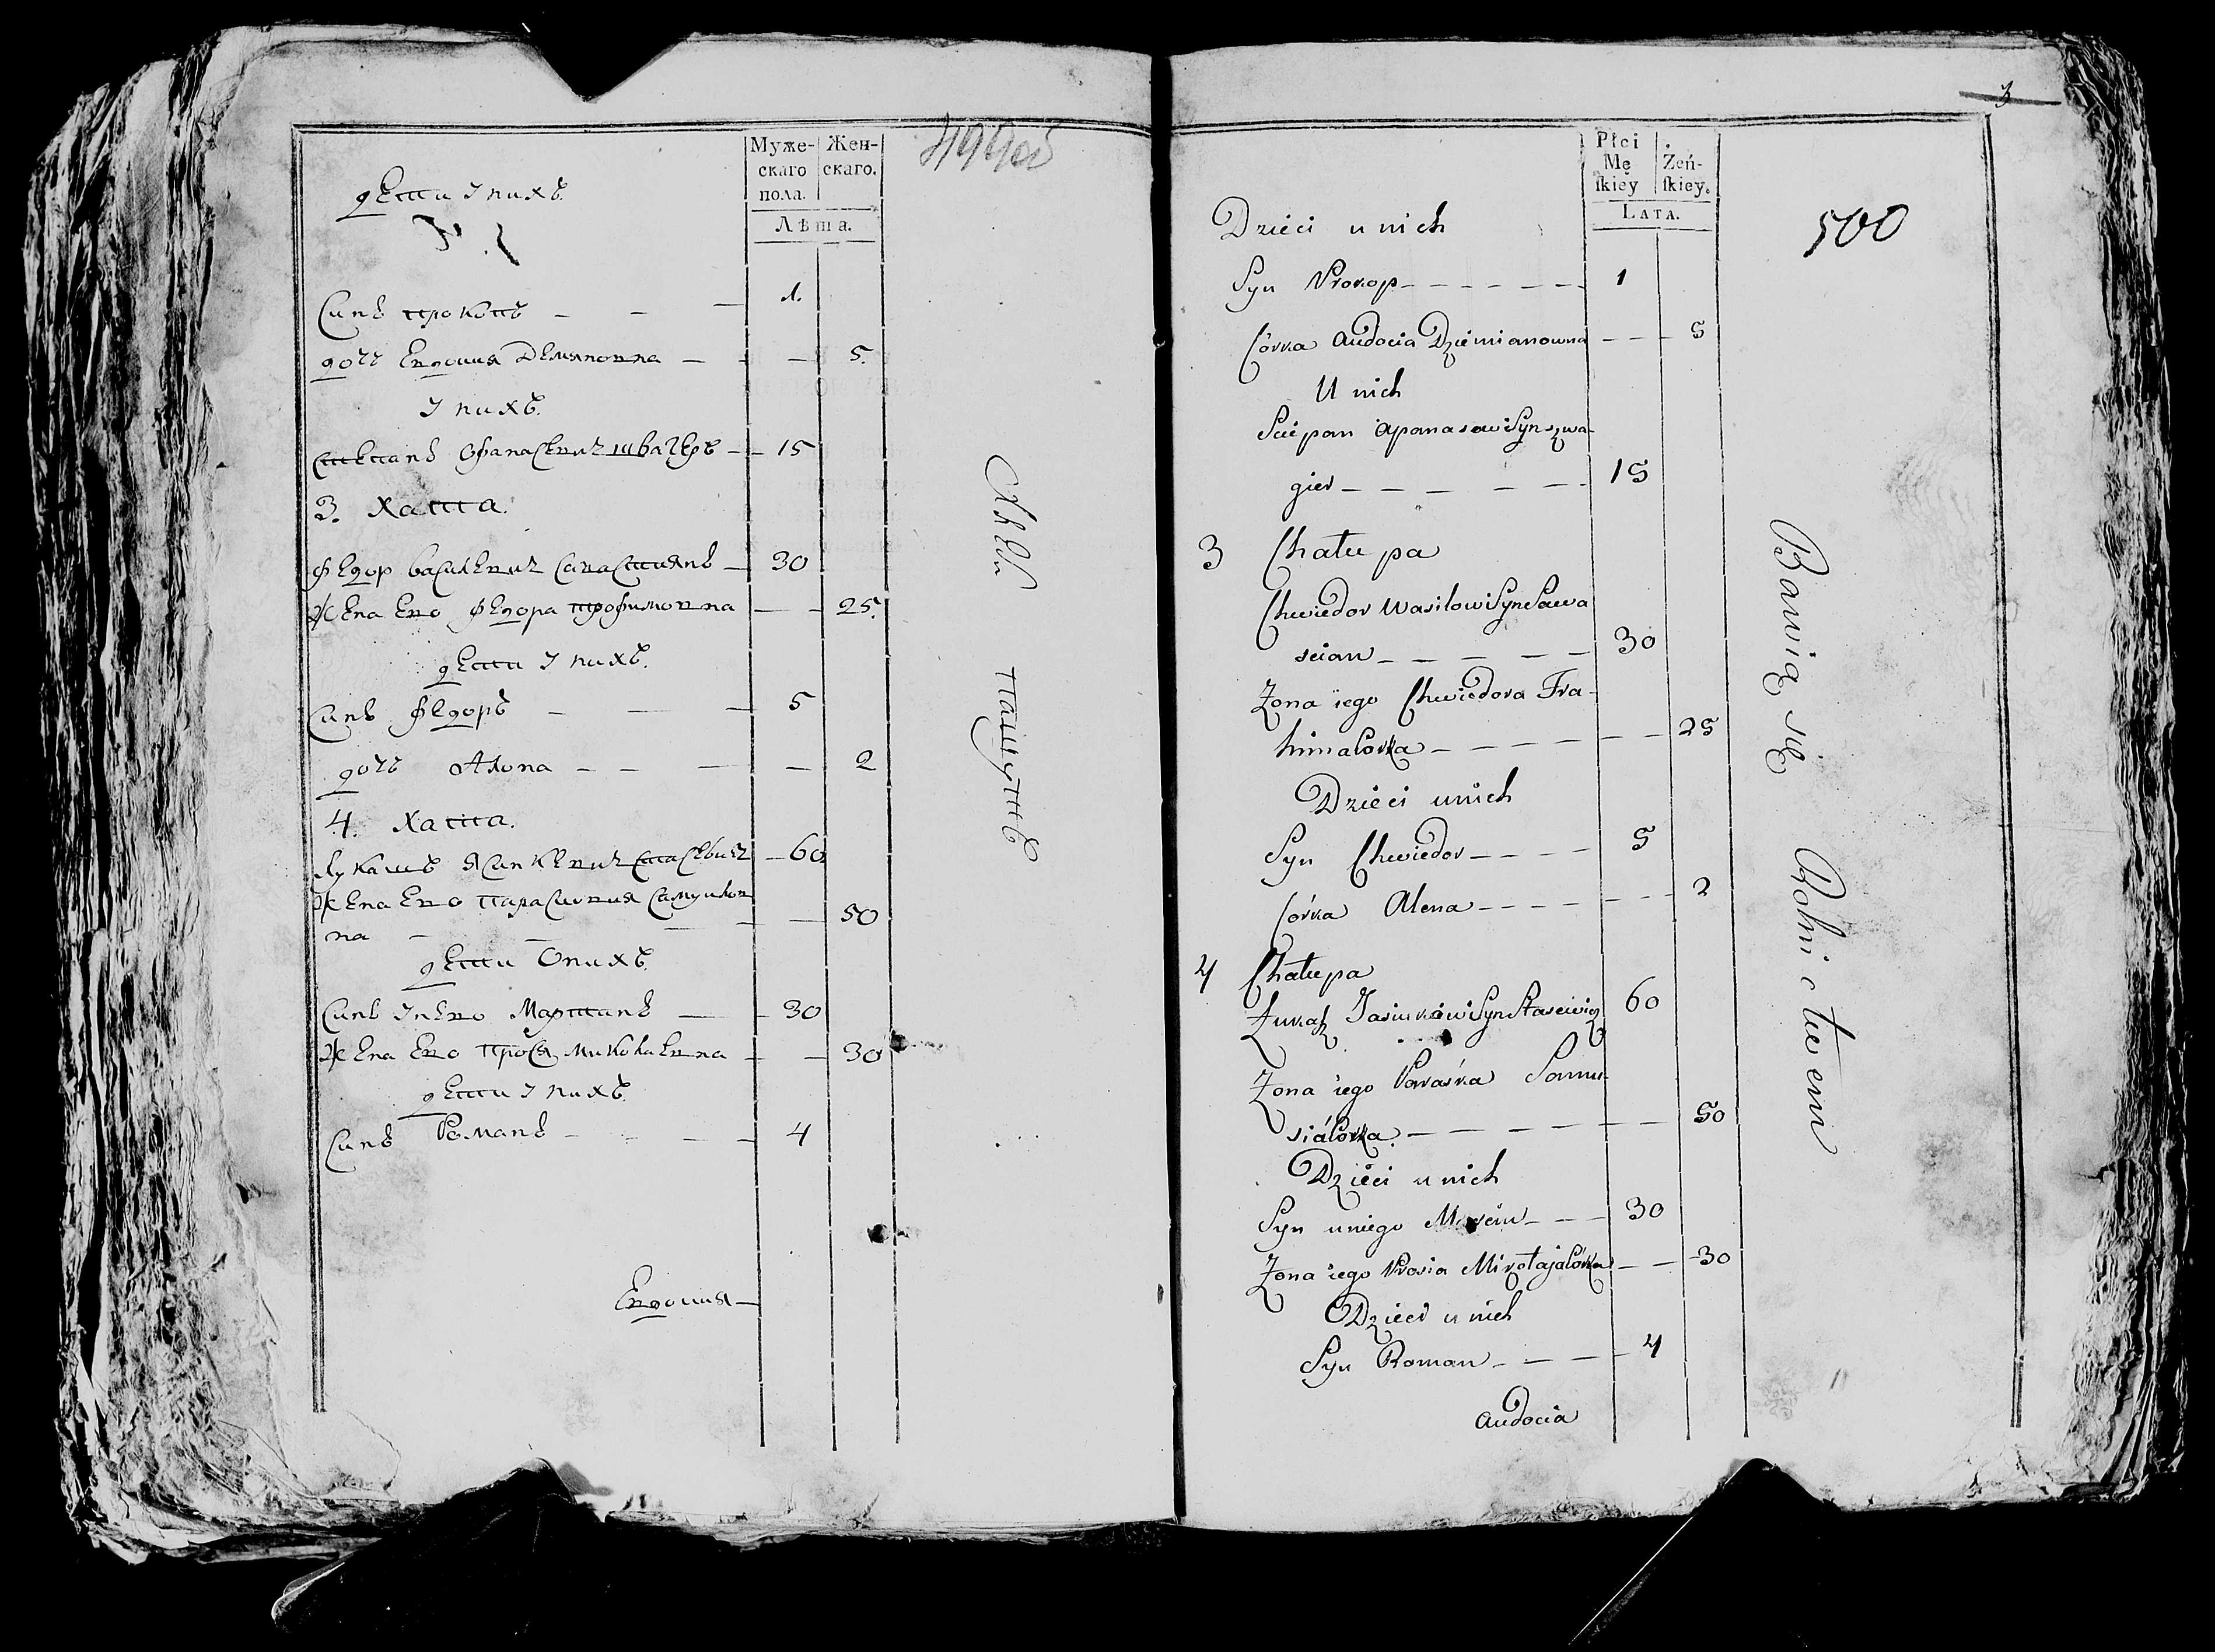 Муже-
скаго
пола.
Жен-
скаго.
Лѣта.
дети Iнихъ
Синъ прокопъ — — — 1.
дочъ Евдошия Демяновна — — — 5.
I нихъ.
Степанъ Офанасевич швагеръ — — 15
3. Хатта.
Федор василевич Савастиянъ — 30
Жена Ево Федора трофимовна — — 25.
дети I нихъ.
Синъ Федоръ — — — 5
дочъ Алона — — — — 2
4. Хатта.
Лукашъ Ясинкевич Стасевич — 60
Жена Ево Парасковия Самуилов
на — — — — — 50
дети Онихъ.
Синъ Iнево Мартинъ — — 30
Жена Ево прося миколаевна — — 30
дети I нихъ.
Синъ Романъ — — — 4
Евдошия —
Хлебо пашутъ
3
Płci
Mę
ſkiey
Żeń-
ſkiey.
Lata.
500
Dzieci u nich
Syn Prokop — — — — — — 1
Córka Audocia Dziemianowna — — — 5
U nich
Sciepan Apanasowi Syn szwa-
gier — — — — — 15
3 Chałupa
Chwiedor Wasilowi Syn Sawa
scian — — — — — 30
Żona iego Chwiedora Tra-
himałovka — — — — — — — 25
Dzieci u nich
Syn Chwiedor — — — — 5
Córka Alena — — — — — — — 2
4 Chałupa
Łukasz Jasiukowi Syn Stasewicz 60
Żona iego Paraśka Samu-
siałovka. — — — — — — — 50
Dzieci u nich
Syn u niego Marcin — — — 30
Żona iego Prosia Mikołajałovka — — 30
Dzieci u nich
Syn Roman — — — — 4
Audocia
Bawią się Rolnictwem